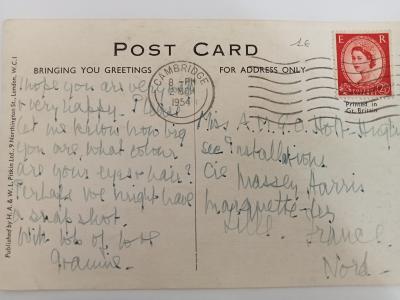 1E
POST CARD
BRINGING YOU GREETINGS
FOR ADDRESS ONLY
CAMBRIDGE
8 - PM
1954
E R
2½
Printed in
Gt. Britain
Published by H. A. & W. L. Pitkin Ltd., 9 Northington St., London, W.C.1
I hope you are very
& very happy. Please
let me know how big
you are what colour
are your eyes & hair?
Perhaps we might have
a snap shot.
With lots of love
Miss A.M.G.O. Holt
Installations
Cie Massey Harris
Marquette-lez
Lille. France.
Nord.